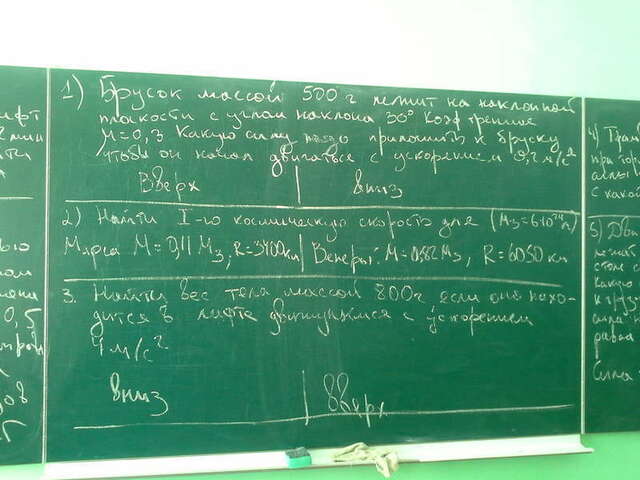 1) Брусок массой 500 г лежит на наклонной
плоскости с углом наклона 30° Коэф трения
μ=0,3 Какую силу надо приложить к бруску
чтобы он начал двигаться с ускорением 0,2 м/с²
Вверх | вниз
2) Найти I-ю космическую скорость для (Mз=6·10²⁴)
Марса M=0,11 Mз, R=3400км | Венеры: M=0,82 Mз, R=6050 км
3. Найти вес тела массой 800г если оно нахо-
дится в лифте движущимся с ускорением
4 м/с²
вниз | вверх
ифт
0,5
4)
при
с како
5) Два
лежат
стол
какую
к
сила
равна
Сила